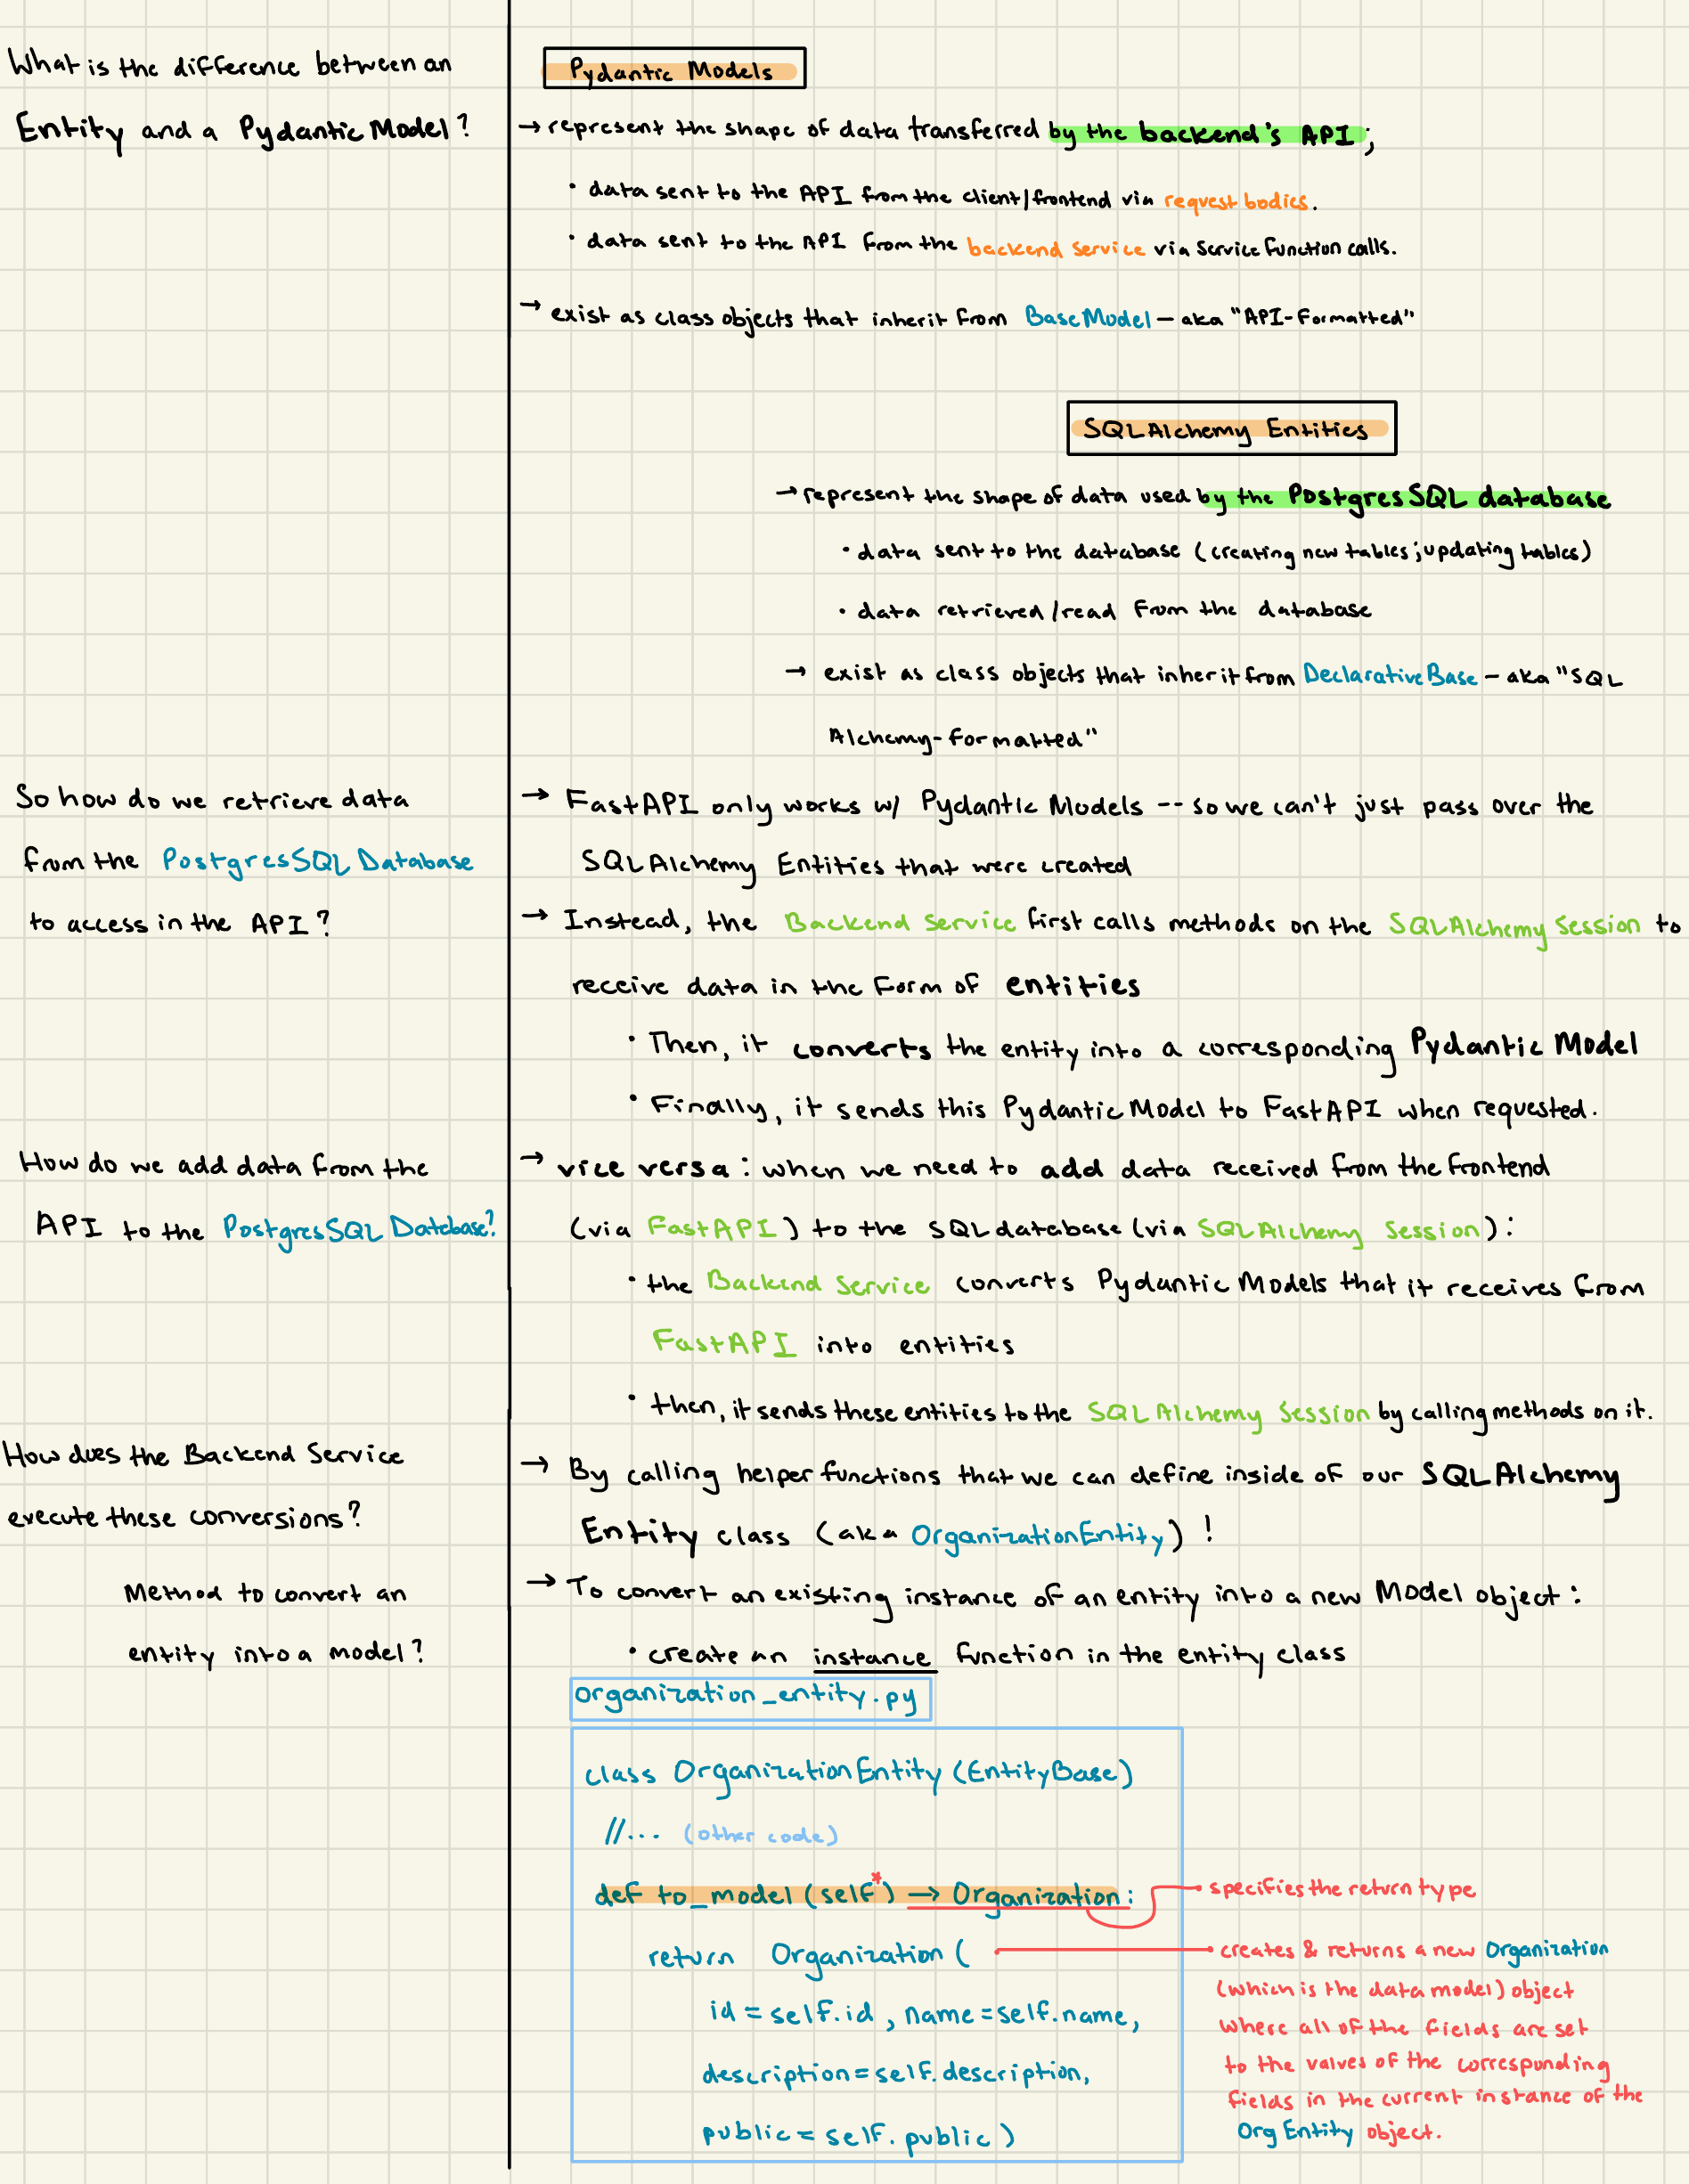 What is the difference between an
Entity and a Pydantic Model?
Pydantic Models
→ represent the shape of data transferred by the backend's API;
• data sent to the API from the client/frontend via request bodies.
• data sent to the API from the backend service via service function calls.
→ exist as class objects that inherit from BaseModel — aka "API-Formatted"
SQLAlchemy Entities
→ represent the shape of data used by the PostgresSQL database
• data sent to the database (creating new tables; updating tables)
• data retrieved/read from the database
→ exist as class objects that inherit from DeclarativeBase – aka "SQL
Alchemy-formatted"
So how do we retrieve data
from the PostgresSQL Database
to access in the API?
→ FastAPI only works w/ Pydantic Models -- so we can't just pass over the
SQLAlchemy Entities that were created
→ Instead, the Backend Service first calls methods on the SQLAlchemy Session to
receive data in the form of entities
• Then, it converts the entity into a corresponding Pydantic Model
• Finally, it sends this Pydantic Model to FastAPI when requested.
How do we add data from the
API to the PostgresSQL Database?
→ vice versa: when we need to add data received from the frontend
(via FastAPI) to the SQL database (via SQLAlchemy Session):
• the Backend Service converts Pydantic Models that it receives from
FastAPI into entities
• then, it sends these entities to the SQLAlchemy Session by calling methods on it.
How does the Backend Service
execute these conversions?
→ By calling helper functions that we can define inside of our SQLAlchemy
Entity class (aka OrganizationEntity)!
Method to convert an
entity into a model?
→ To convert an existing instance of an entity into a new Model object:
• create an instance function in the entity class
organization_entity.py
class OrganizationEntity (EntityBase)
//... (other code)
def to_model (self*) → Organization:
specifies the return type
return Organization (
id = self.id, name = self.name,
description = self.description,
public = self.public)
creates & returns a new Organization
(which is the data model) object
where all of the fields are set
to the values of the corresponding
fields in the current instance of the
Org Entity object.